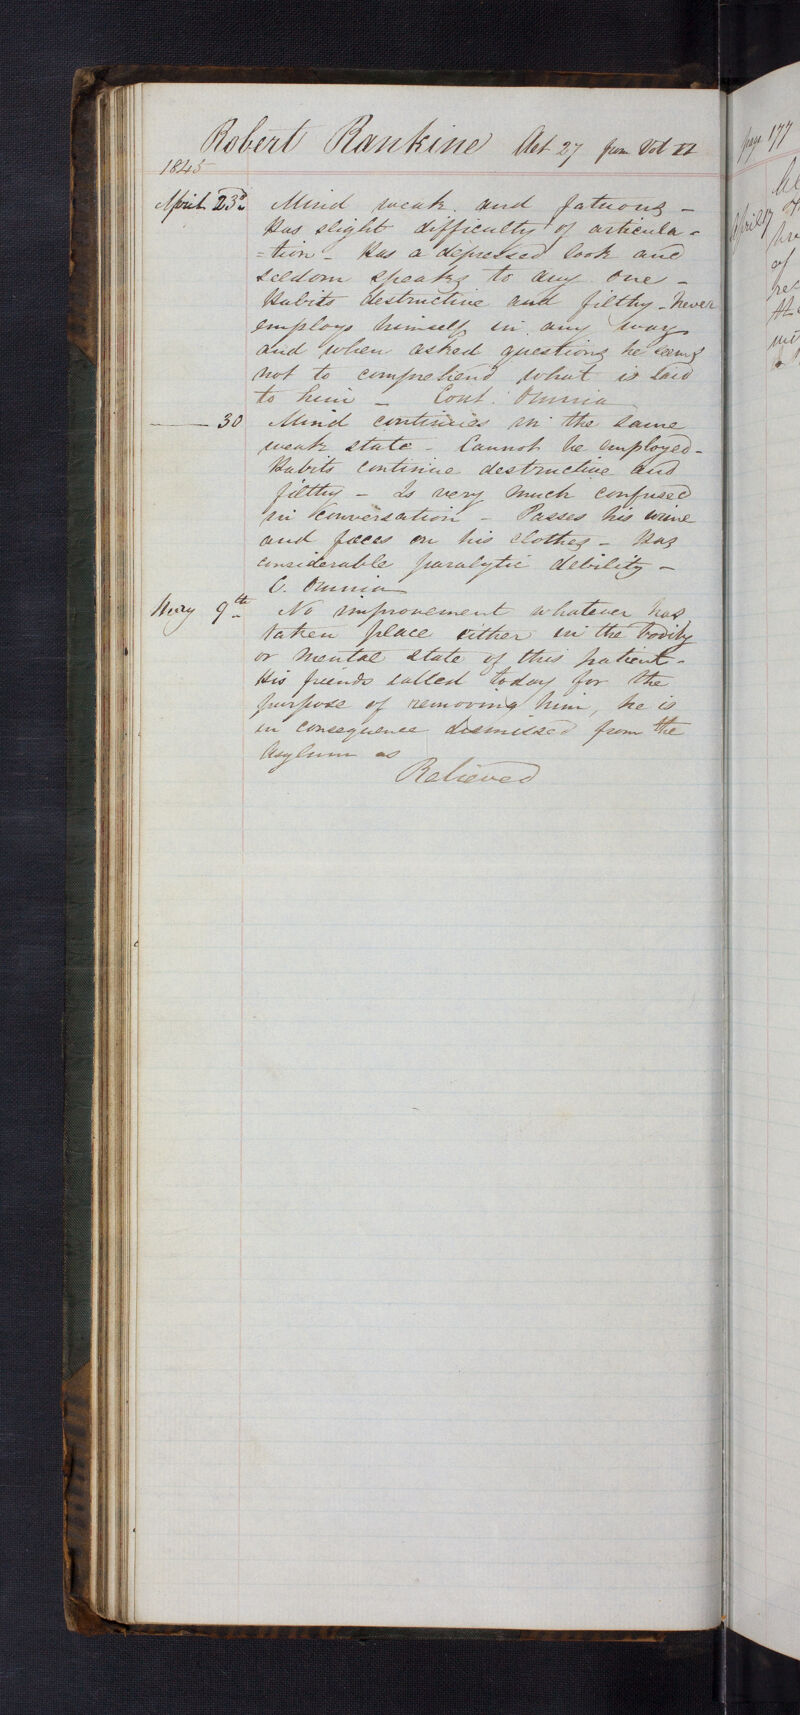 Robert Rankine Aet 27 from Vol II
1845
April 23d Mind weak and fatuous -
Has slight difficulty of articula=
=tion - Has a depressed look and
seldom speaks to any one -
Habits destructive and filthy - Never
employs himself in any way
and when asked questions he seems
not to comprehend what is said
to him - Cont. Omnia
30 Mind continues in the same
weak state - Cannot be employed -
Habits continue destructive and
filthy - Is very much confused
in conversation - Passes his urine
and fæces on his clothes - Has
considerable paralytic debility -
C. Omnia
May 9th No improvement whatever has
taken place either in the bodily
or mental state of this patient -
His friends called today for the
purpose of removing him, he is
in consequence dismissed from the
Asylum as
Relieved
page 177
April 17
of